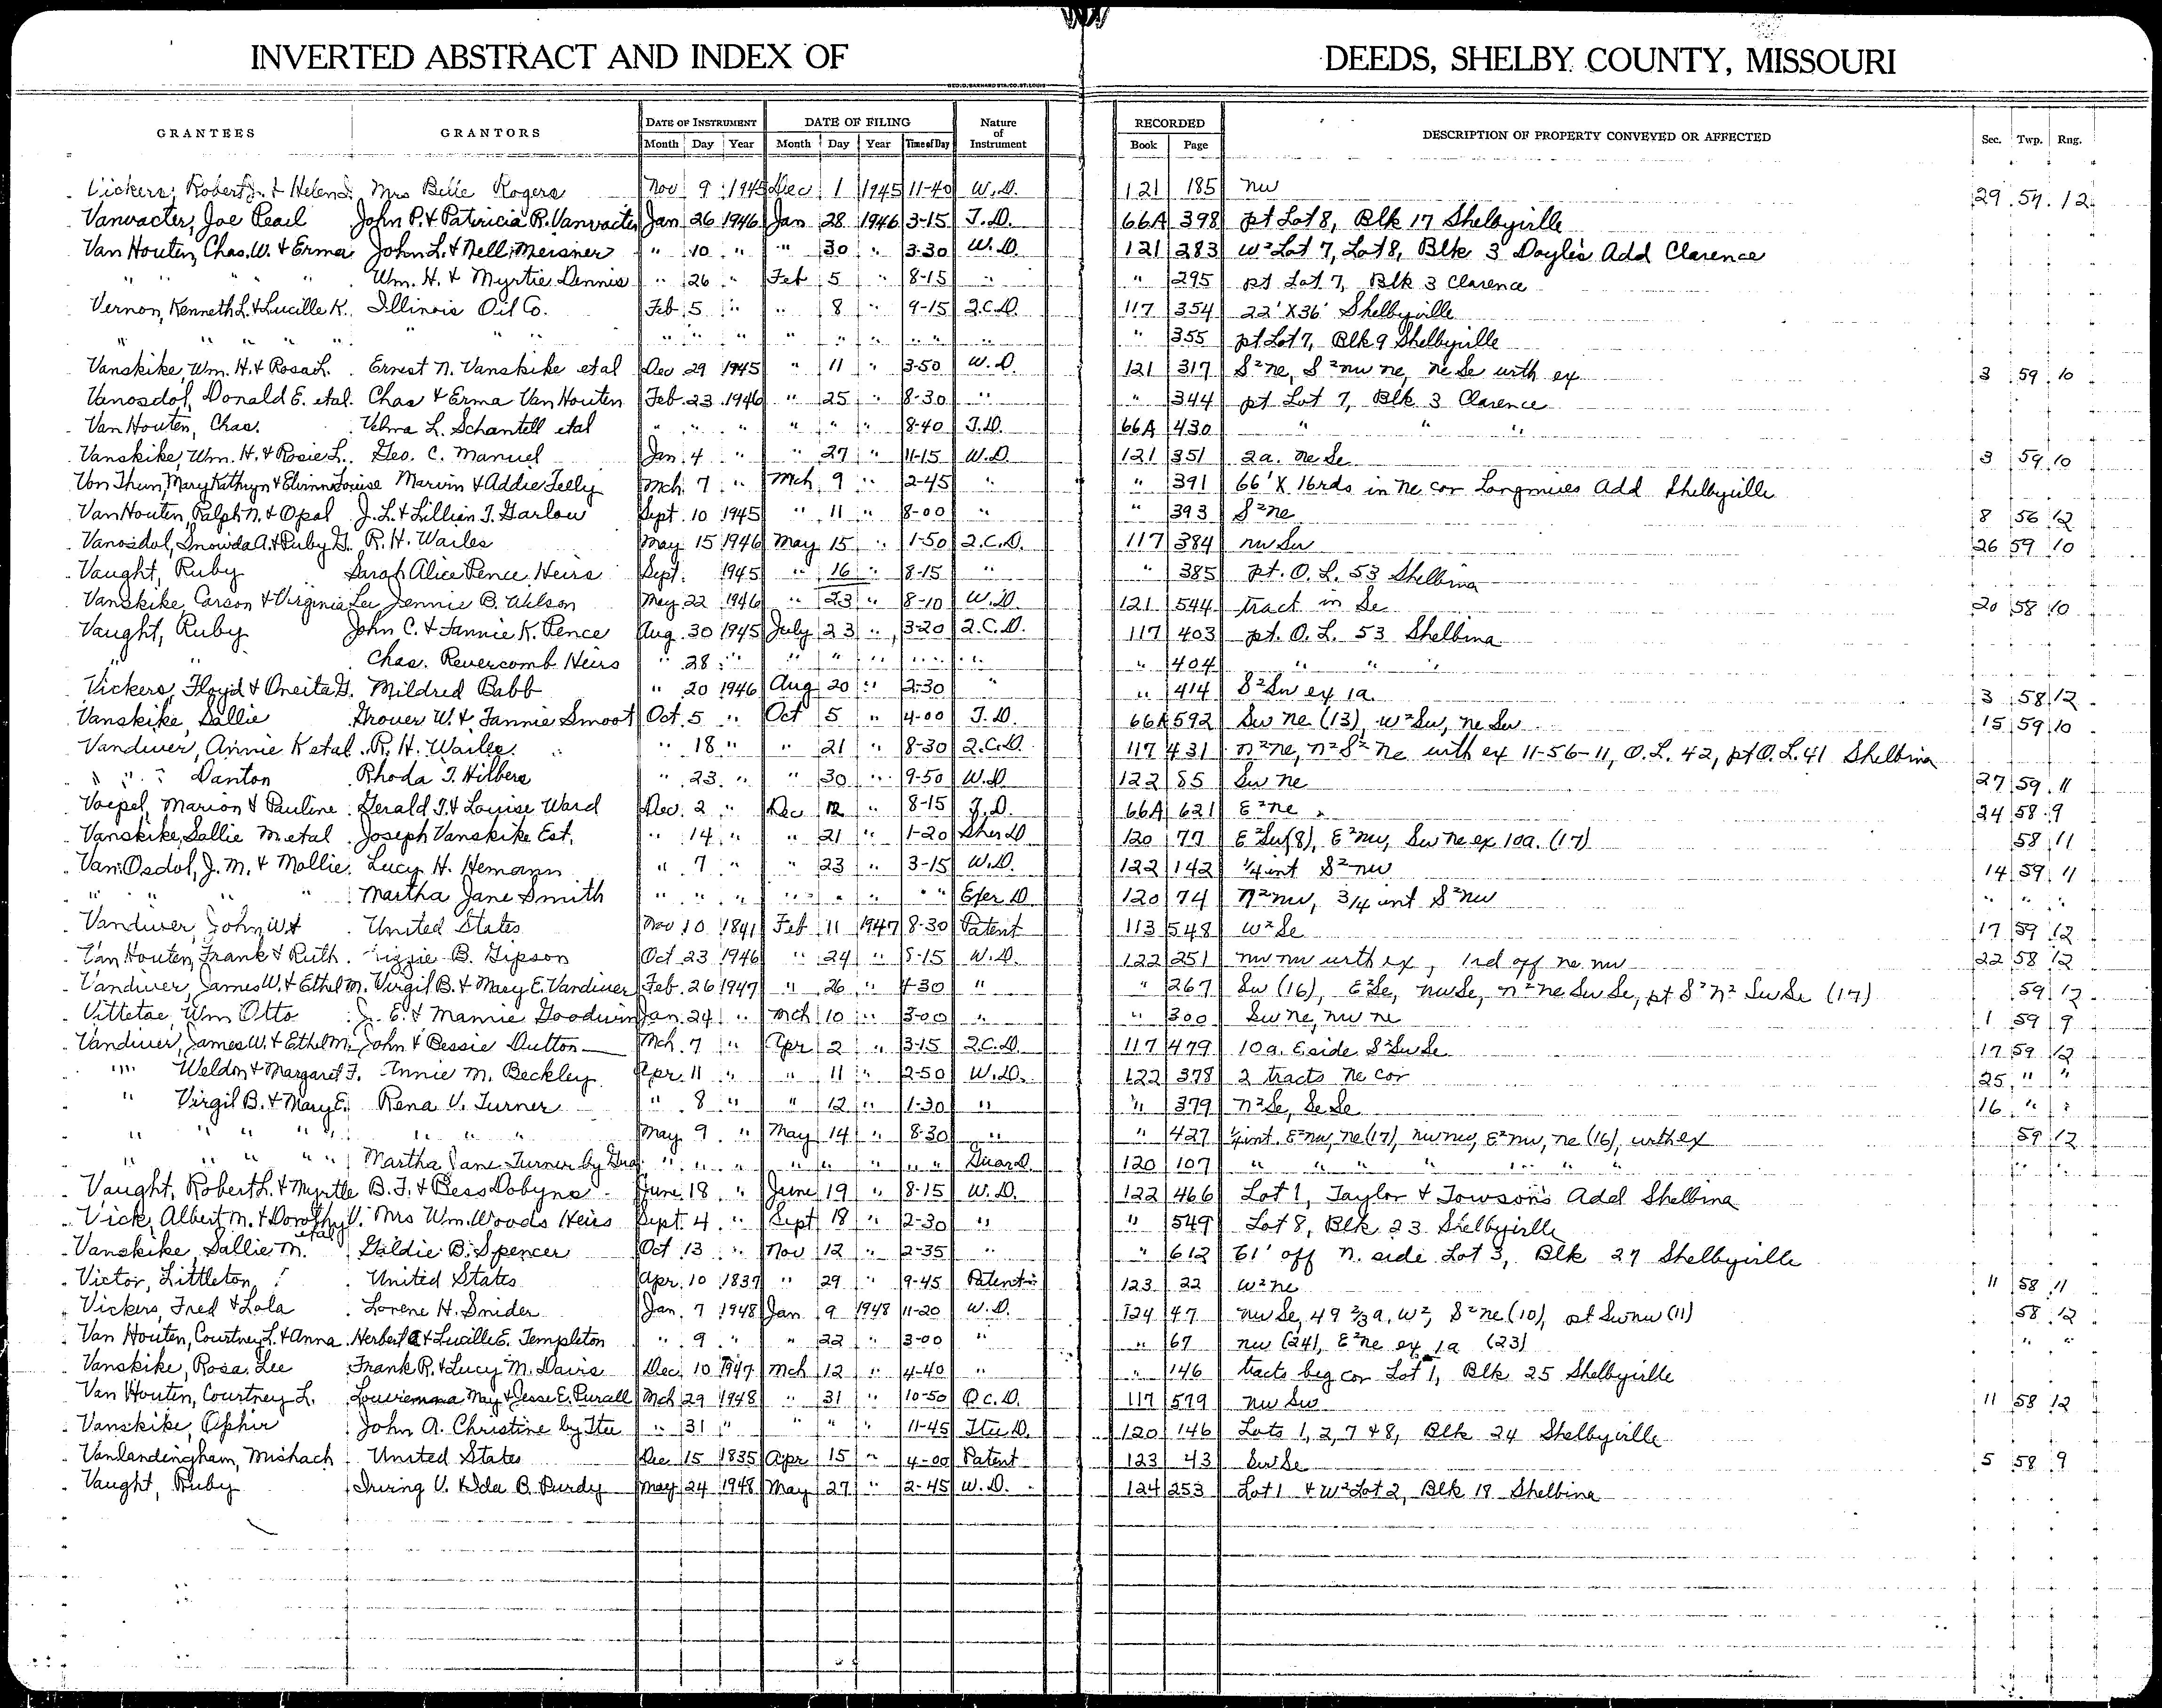 INVERTED ABSTRACT AND INDEX OF DEEDS, SHELBY COUNTY, MISSOURI
GEO. D. BARNARD STA. CO. ST. LOUIS
GRANTEES GRANTORS DATE OF INSTRUMENT DATE OF FILING Nature of Instrument RECORDED DESCRIPTION OF PROPERTY CONVEYED OR AFFECTED Sec. Twp. Rng.
Month Day Year Month Day Year Time of Day Book Page
Vickers, Robert & Helen Mrs Belle Rogers Nov 9 1945 Dec 1 1945 11-40 W.D. 121 185 nw 29 57 12
Vanvacter, Joe Pearl John P. & Patiricia R. Vanvacter Jan 26 1946 Jan 28 1946 3-15 T.D. 66A 398 pt Lot 8, Blk 17 Shelbyville
Van Houten, Chas. W. & Erma John L. & Nell Meisner " 10 " " 30 " 3-30 W.D. 121 283 W² Lot 7, Lot 8, Blk 3 Doyle's Add Clarence
" " " Wm. H. & Myrtie Dennis " 26 " Feb 5 " 8-15 " " 295 pt Lot 7, Blk 3 Clarence
Vernon, Kenneth L. & Lucille K. Illinois Oil Co. Feb 5 " " 8 " 9-15 2.C.D. 117 354 22' X 36' Shelbyville
" " " " " " " " " " " " " " " " " 355 pt Lot 7, Blk 9 Shelbyville
Vanskike, Wm. H. & Rosa L. Ernest N. Vanskike etal Dec 29 1945 " 11 " 3-50 W.D. 121 317 S² ne, S² nw ne, ne Se with ex 3 59 10
Vanosdol, Donald E. etal. Chas & Erma Van Houten Feb. 23 1946 " 25 " 8-30 " " 344 pt Lot 7, Blk 3 Clarence
Van Houten, Chas. Velma L. Schantell etal " " " " " " 8-40 T.D. 66A 430 " " "
Vanskike, Wm. H. & Rosie L. Geo. C. Manuel Jan. 4 " " 27 " 11-15 W.D. 121 351 2a. ne Se 3 59 10
Von Thun, Mary Kathryn & Elvinn Louise Marvin & Addie Feely Mch. 7 " Mch 9 " 2-45 " " 391 66' X 16rds in ne cor Longmires Add Shelbyville
Van Houten, Ralph N. & Opal J. L. & Lillian T. Garlow Sept. 10 1945 " 11 " 8-00 " " 393 S² ne 8 56 12
Vanosdol, Snowda A. & Ruby G. R. H. Wailes May 15 1946 May 15 " 1-50 2.C.D. 117 384 nw Sw 26 59 10
Vaught, Ruby Sarah Alice Pence Heirs Sept. 1945 " 16 " 8-15 " " 385 pt. O. L. 53 Shelbina
Vanskike, Carson & Virginia Lee Jennie B. Wilson May 22 1946 " 23 " 8-10 W.D. 121 544 tract in Se 20 58 10
Vaught, Ruby John C. & Fannie K. Pence Aug. 30 1945 July 23 " 3-20 2.C.D. 117 403 pt. O. L. 53 Shelbina
" " Chas. Revercomb Heirs " 28 " " " " " " " 404 " " "
Vickers, Floyd & Oneita G. Mildred Babb " 20 1946 Aug 20 " 2-30 " " 414 S² Sw ex 1a. 3 58 12
Vanskike, Sallie Grover W. & Fannie Smoot Oct. 5 " Oct 5 " 4-00 T.D. 66A 592 Sw ne (13), W² Sw, ne Sw 15 59 10
Vandiver, Annie K etal R. H. Wailes " 18 " " 21 " 8-30 2.C.D. 117 431 n² ne, n² S² ne with ex 11-56-11, O. L. 42, pt O. L. 41 Shelbina
" " Danton Rhoda T. Hilbers " 23 " " 30 " 9-50 W.D. 122 85 Sw ne 27 59 11
Voepel, Marion & Pauline Gerald T. & Louise Ward Dec. 2 " Dec 12 " 8-15 T.D. 66A 621 E² ne 24 58 9
Vanskike, Sallie M. etal Joseph Vanskike Est. " 14 " " 21 " 1-20 Sher D 120 77 E² Sw (8), E² nw, Sw ne ex 10a. (17) 58 11
Van Osdol, J. M. & Mollie Lucy H. Hemann " 7 " " 23 " 3-15 W.D. 122 142 1/4 int S² nw 14 59 11
" " " Martha Jane Smith " " " " " " " " Exer D. 120 74 n² nw, 3/4 int S² nw " " "
Vandiver, John W & United States Nov 10 1841 Feb 11 1947 8-30 Patent 113 548 W² Se 17 59 12
Van Houten, Frank & Ruth Lizzie B. Gipson Oct 23 1946 " 24 " 8-15 W.D. 122 251 nw nw with ex, 1rd off ne nw 22 58 12
Vandiver, James W. & Ethel M. Virgil B. & Mary E. Vandiver Feb. 26 1947 " 26 " 4-30 " " 267 Sw (16), E² Se, nw Se, n² ne Sw Se, pt S² n² Sw Se (17) 59 12
Vittetoe, Wm Otto J. E. & Mamie Goodwin Jan. 24 " Mch 10 " 3-00 " " 300 Sw ne, nw ne 1 59 9
Vandiver, James W. & Ethel M. John & Bessie Dutton Mch. 7 " Apr 2 " 3-15 2.C.D. 117 479 10a. E side S² Sw Se 17 59 12
" " Weldon & Margaret F. Annie M. Beckley Apr. 11 " " 11 " 2-50 W.D. 122 378 2 tracts ne cor 25 " "
" Virgil B. & Mary E. Rena V. Turner " 8 " " 12 " 1-30 " " 379 n² Se, Se Se 16 " "
" " " " " " " " May 9 " May 14 " 8-30 " " 427 1/4 int. E² nw, ne (17), nw nw, E² nw, ne (16), with ex 59 12
" " " " " Martha Jane Turner by Gua. " " " " " " " " Guar D. 120 107 " " " " " " "
Vaught, Robert L. & Myrtle B. F. & Bess Dobyns June 18 " June 19 " 8-15 W.D. 122 466 Lot 1, Taylor & Towson's Add Shelbina
Vick, Albert M. & Dorothy V. Mrs Wm. Woods Heirs Sept. 4 " Sept 18 " 2-30 " " 549 Lot 8, Blk 23 Shelbyville
Vanskike, Sallie M. etal Goldie B. Spencer Oct 13 " Nov 12 " 2-35 " " 612 61' off N. side Lot 3, Blk 27 Shelbyville
Victor, Littleton United States Apr. 10 1837 " 29 " 9-45 Patent 123 22 W² ne 11 58 11
Vickers, Fred & Lola Lorene H. Snider Jan. 7 1948 Jan 9 1948 11-20 W.D. 124 47 nw Se, 49 2/3 a, W², S² ne (10), pt Sw nw (11) 58 12
Van Houten, Courtney L. & Anna Herbert A & Lucille E. Templeton " 9 " " 22 " 3-00 " " 67 nw (24), E² ne ex 1a (23) " "
Vanskike, Rosa Lee Frank R. & Lucy M. Davis Dec. 10 1947 Mch 12 " 4-40 " " 146 tracts beg cor Lot 1, Blk 25 Shelbyville
Van Houten, Courtney L. May & Jesse E. Purall Mch 29 1948 " 31 " 10-50 Q.C.D. 117 579 nw Sw 11 58 12
Vanskike, Ophir John A. Christine by Ttee " 31 " " " " 11-45 Ttee D. 120 146 Lots 1, 2, 7 & 8, Blk 24 Shelbyville
Vanlandingham, Mishach United States Dec 15 1835 Apr 15 " 4-00 Patent 123 43 Sw Se 5 58 9
Vaught, Ruby Irving V. & Ida B. Purdy May 24 1948 May 27 " 2-45 W.D. 124 253 Lot 1 & W² Lot 2, Blk 18 Shelbina